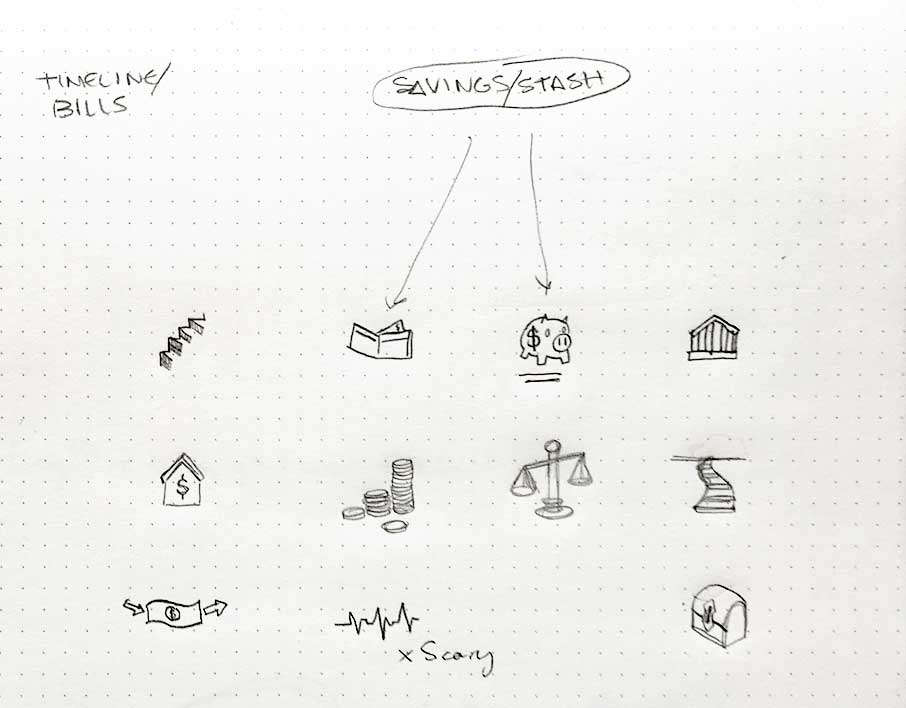 TIMELINE/
BILLS
SAVINGS/STASH
$
$
$
$
x Scary